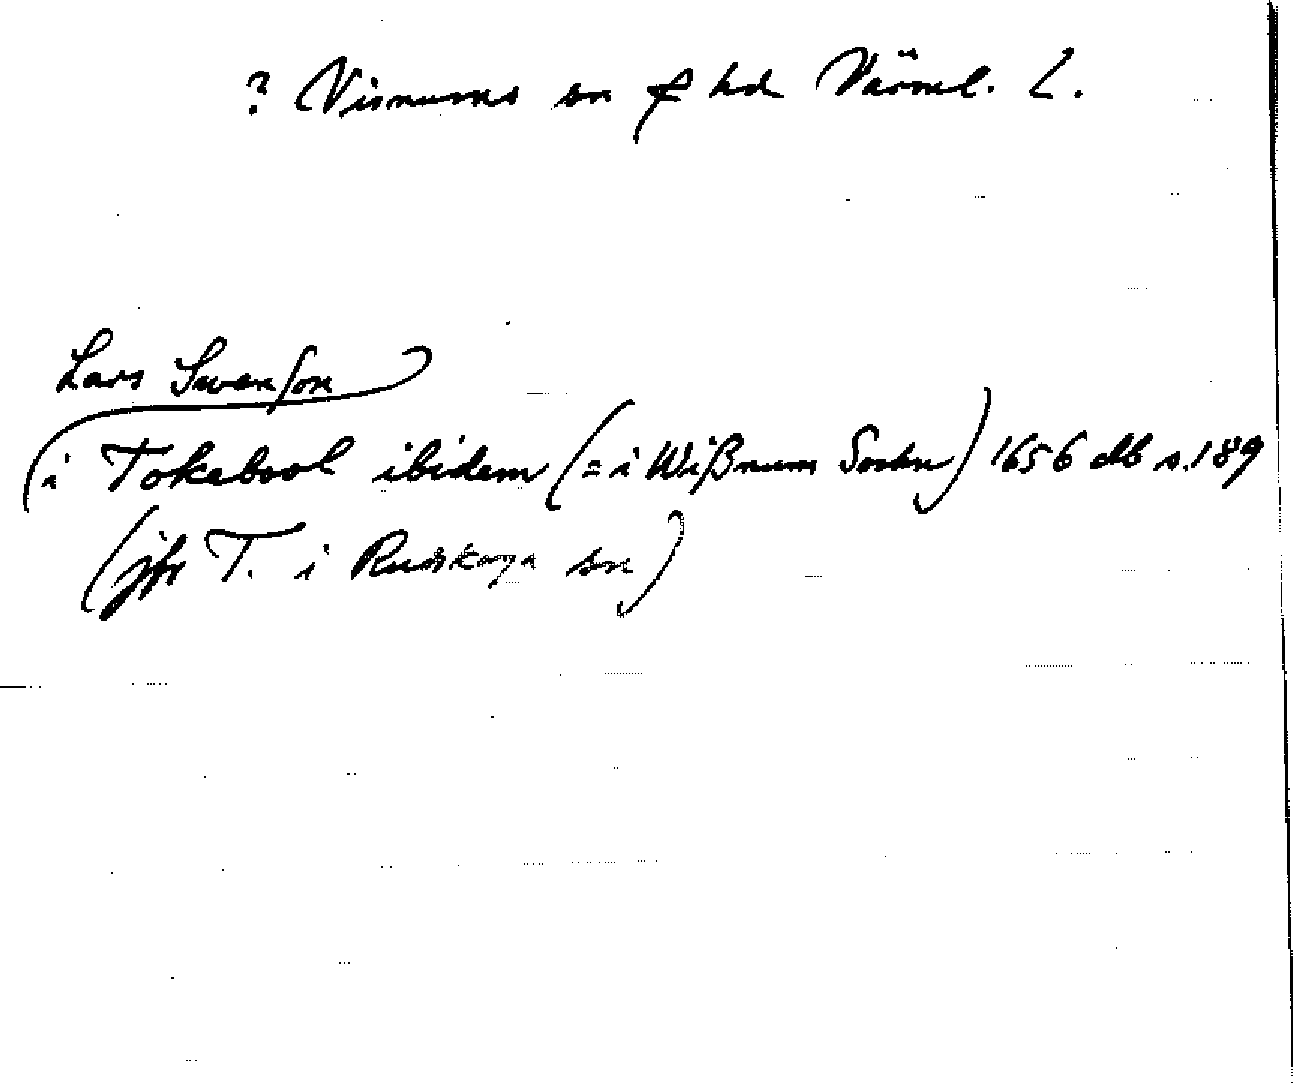 ? Visnums sn f hd Värml. L.
Lars Swenſon
i Tokebool ibidem (= i Wißnum Sochn) 1656 db s. 189
(jfr T. i Rudskoga sn)